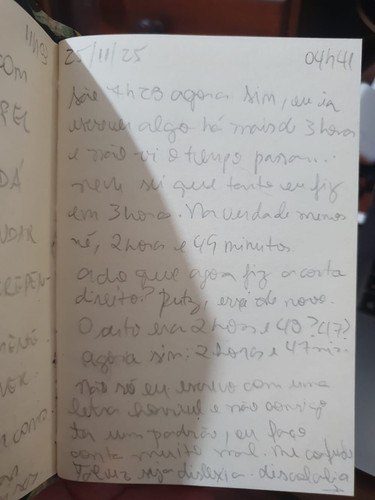 25/11/25 04h41
São 7h28 agora. Sim, eu ia
escrever algo há mais d 3 horas
e não vi o tempo passar...
nem sei que tanto eu fiz
em 3 horas. Na verdade menos
né, 2 horas e 49 minutos
acho que agora fiz a conta
direito? putz, errei de novo.
O certo era 2 horas e 48? (47?)
agora sim: 2 horas e 47 min.
Não só eu escrevo com uma
letra horrível e não consigo
ter um padrão, eu faço
conta muito mal. me confundo
Talvez seja dislexia - discalculia